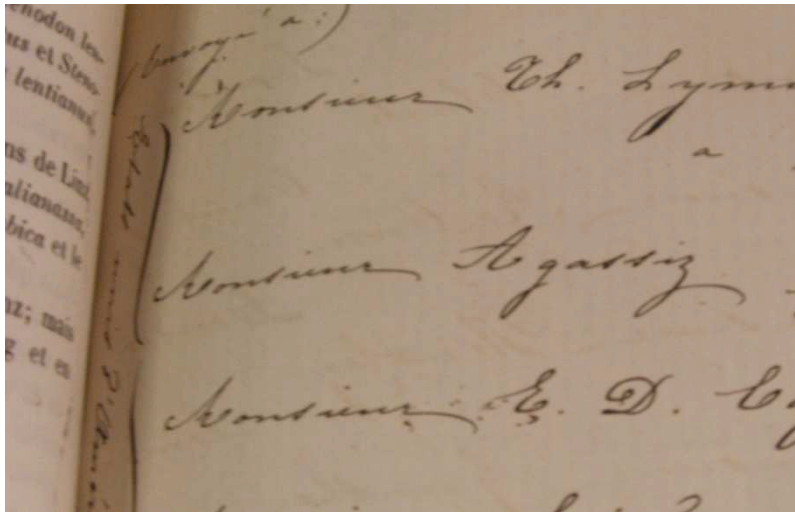 enodon len-
us et Steno-
lentianus,
ns de Linz,
alianassa,
bica et le
nz; mais
g et en
(Envoyé à:)
États unis d'Amé
Monsieur Th. Lym
a
Monsieur Agassiz
Monsieur E. D. Co